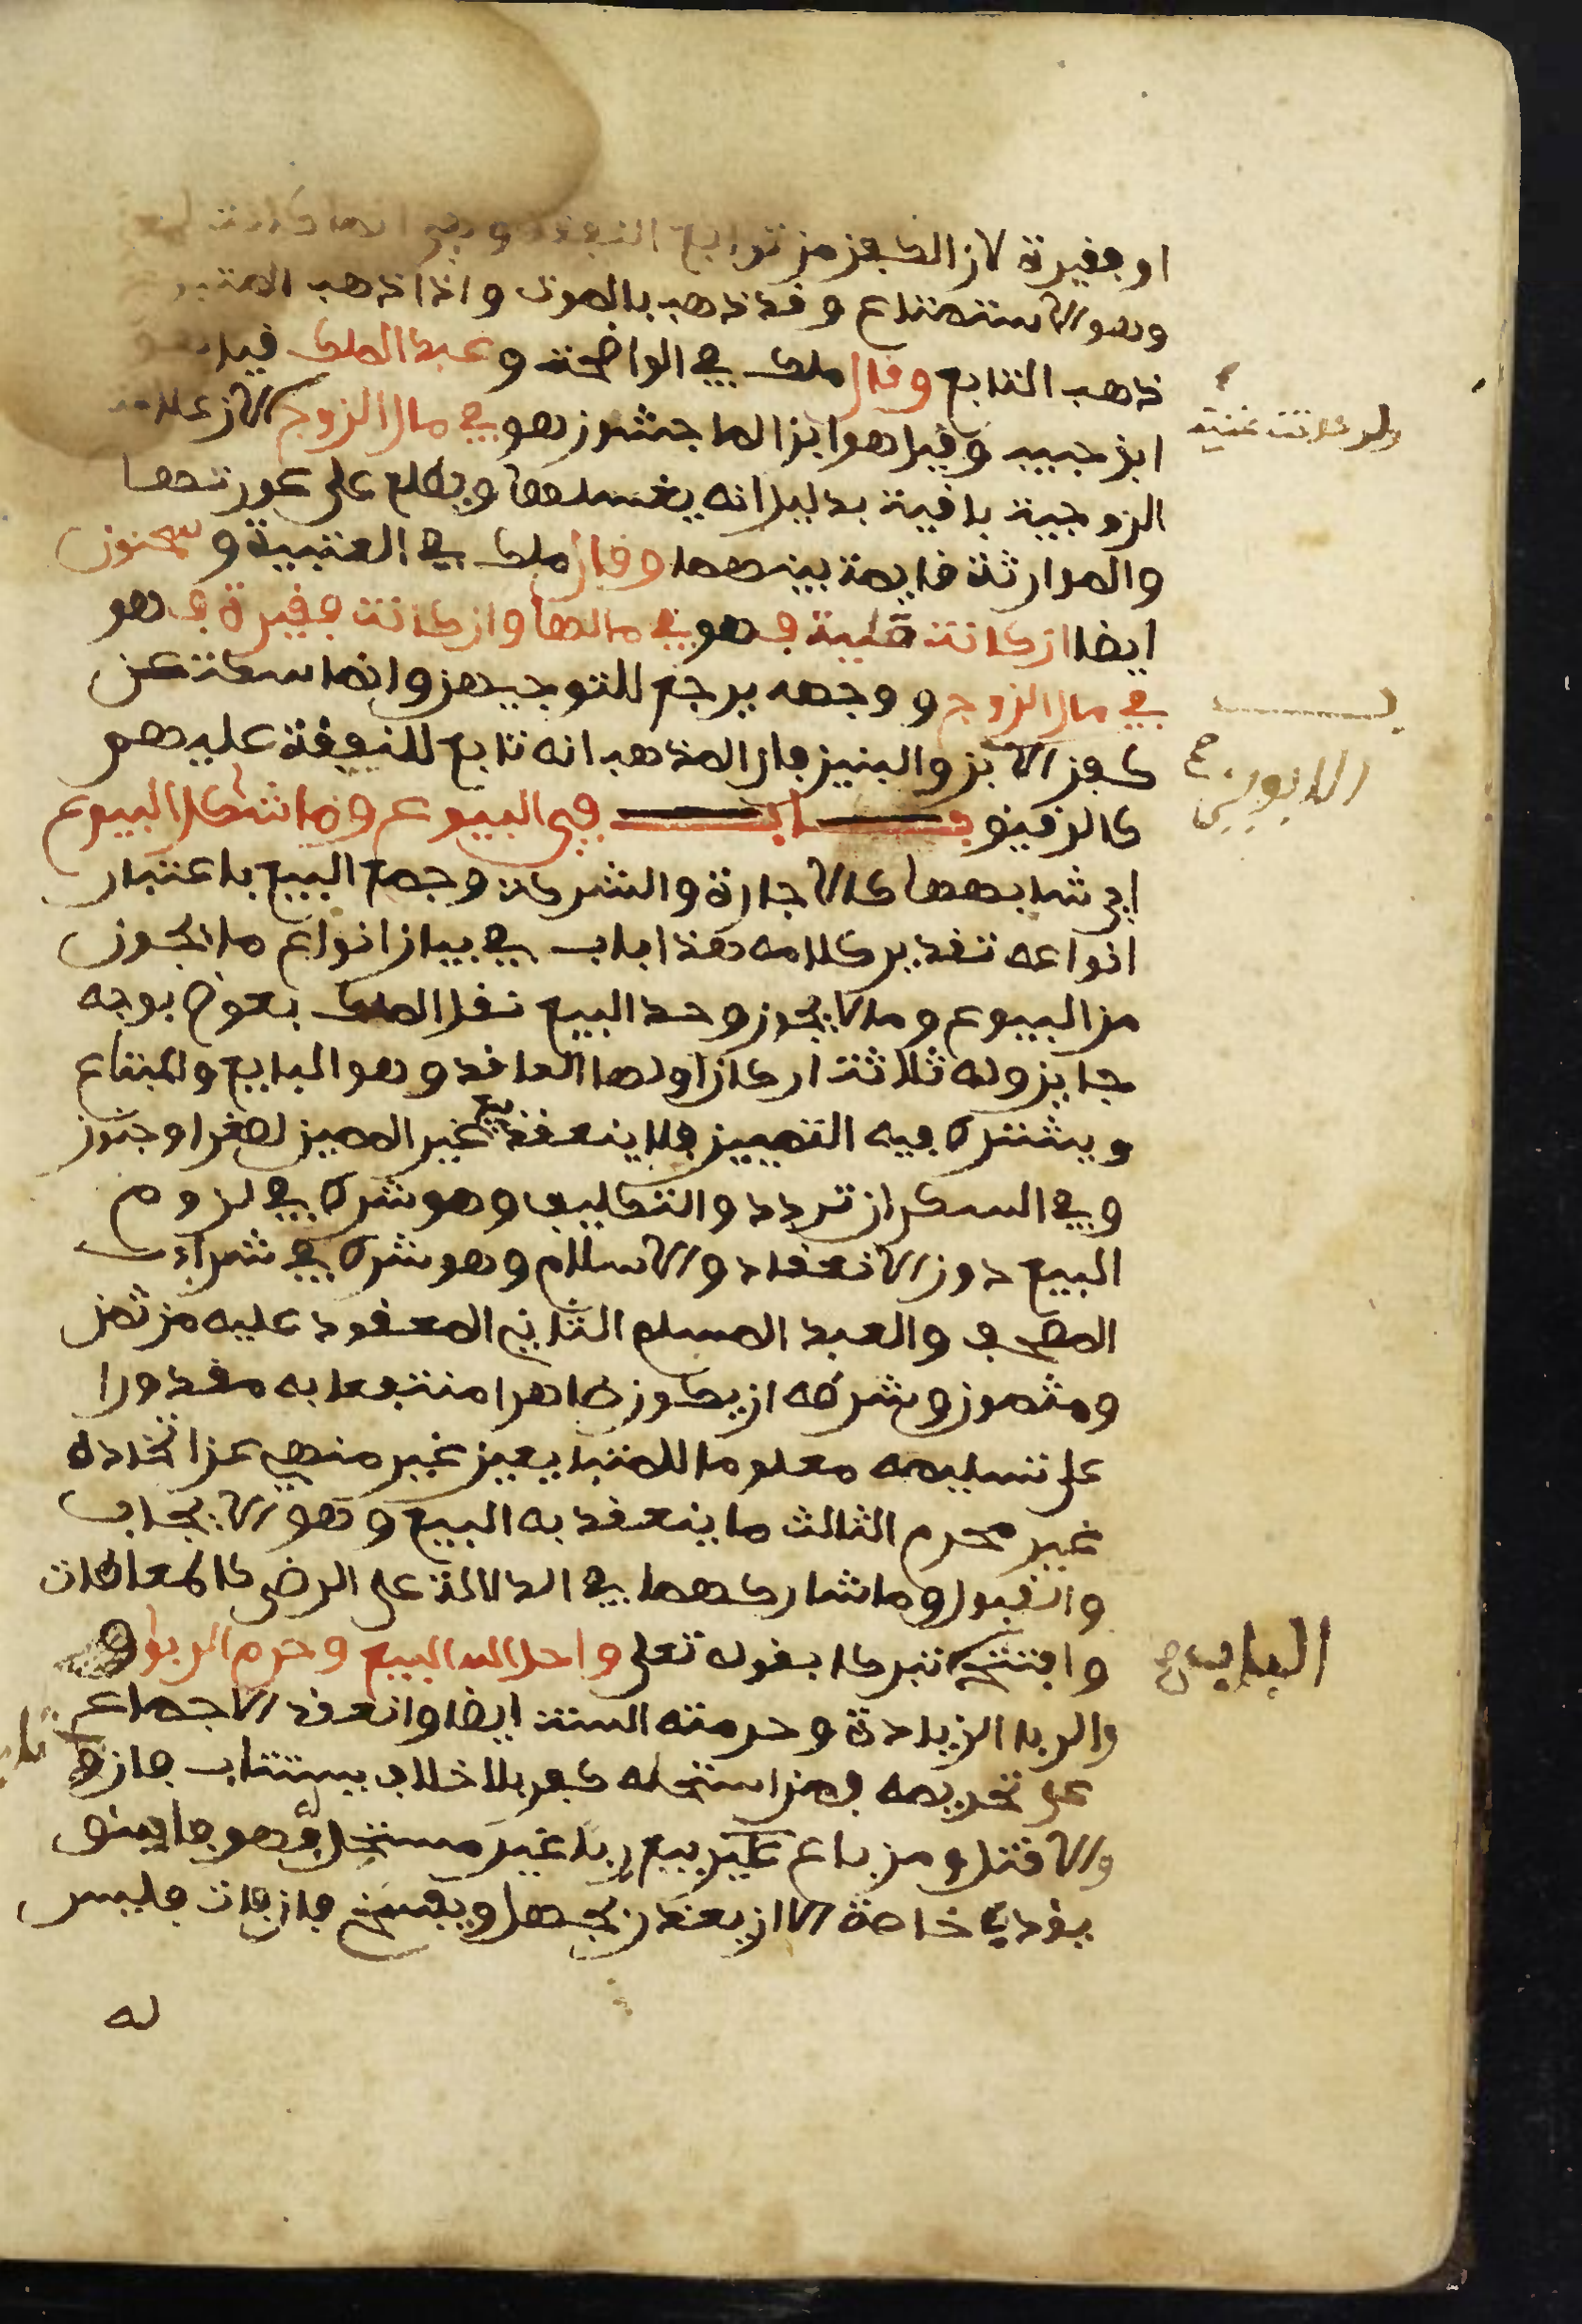 او فقيرة لان الكفن من توابع النفقة وهي انما كانت
وهو الاستمتاع وقد ذهب بالموت واذا ذهب المتبوع
ذهب التابع وقال ملك في الواضحة وعبد الملك قيل هو
ولو كانت غنية
ابن حبيب وقيل هو ابن الماجشون هو في مال الزوج لان علامة
الزوجية باقية بدليل انه يغسلها ويطلع على عورتها
والموارثة قايمة بينهما وقال ملك في العتبية وسحنون
ايضا ان كانت ملية فهو في مالها وان كانت فقيرة فهو
في مال الزوج ووجهه يرجع للتوجيهين وانما سكت عن
كفن الابن والبنين فان المذهب انه تابع للنفقة عليهم
الابوين صح
كالرقيق باب في البيوع وما شاكل البيوع
اي شابهها كالاجارة والشركة وجمع البيع باعتبار
انواعه تقدير كلامه هذا باب في بيان انواع ما يجوز
من البيوع وما لا يجوز وحد البيع نقل الملك بعوض بوجه
جايز وله ثلاثة اركان اولها العاقد وهو البايع والمبتاع
ويشترط فيه التمييز فلا ينعقد بيع غير المميز لصغر او جنون
وفي السكران تردد والتكليف وهو شرط في لزوم
البيع دون الانعقاد والاسلام وهو شرط في شراء
المصحف والعبد المسلم الثاني المعقود عليه من ثمن
ومثمون وشرطه ان يكون طاهرا منتفعا به مقدورا
على تسليمه معلوما للمتبايعين غير منهي عن اتخاده
غير محرم الثالث ما ينعقد به البيع وهو الايجاب
والقبول وما شاركهما في الدلالة على الرضى كالمعاطات
وافتتح تبركا بقوله تعلى واحل الله البيع وحرم الربوا
الباب صح
والربا الزيادة وحرمته السنة ايضا وانعقد الاجماع
على تحريمه فمن استحله كفر بلا خلاف يستتاب فان تاب
والا قتل ومن باع بيع ربا غير مستحل فهو فاسق
يؤدب خاصة الا ان يعذر بجهل ويفسخ فان فات فليس
له